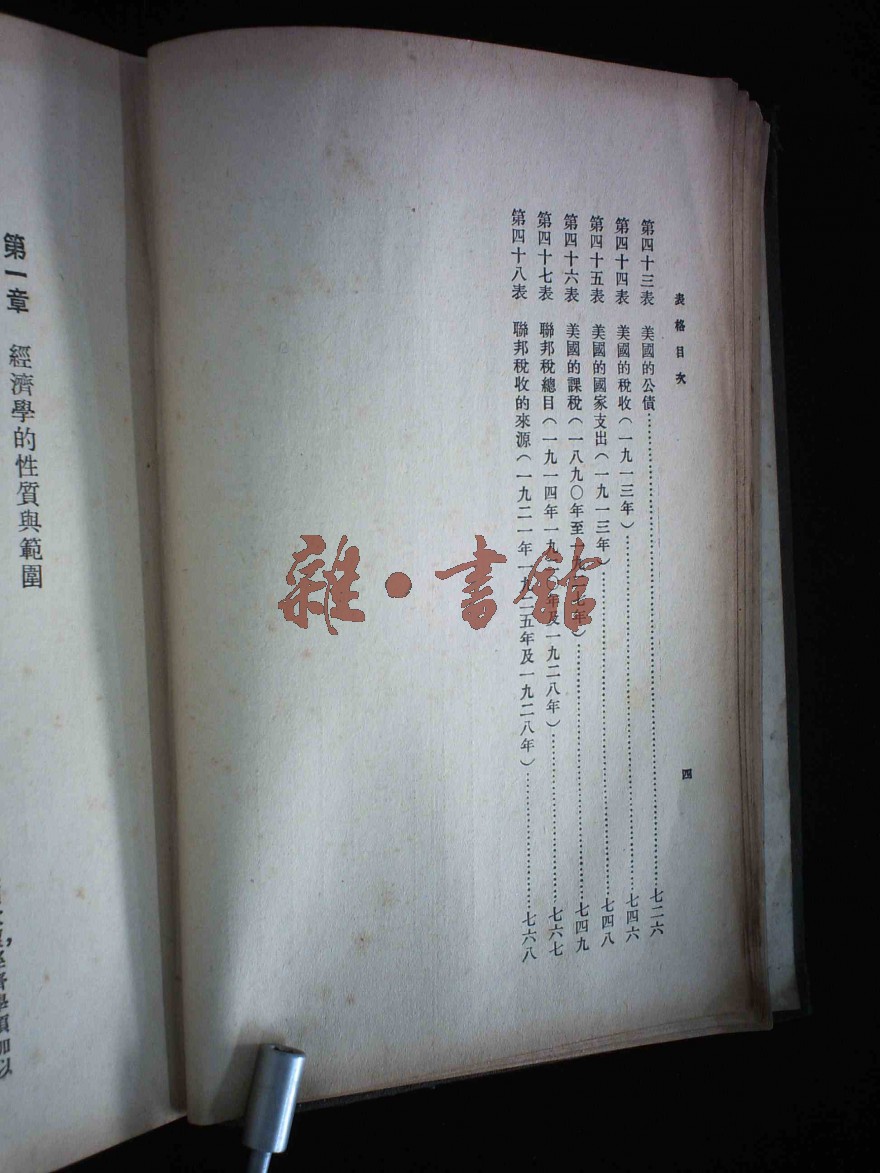 表格目次
四
第四十三表 美國的公債……七二六
第四十四表 美國的稅收(一九一三年)……七四六
第四十五表 美國的國家支出(一九一三年)……七四八
第四十六表 美國的課稅(一八九〇年至一九二七年)……七四九
第四十七表 聯邦稅總目(一九一四年一九二一年及一九二八年)……七六七
第四十八表 聯邦稅收的來源(一九二一年一九二五年及一九二八年)……七六八
雜·書館
第一章 經濟學的性質與範圍